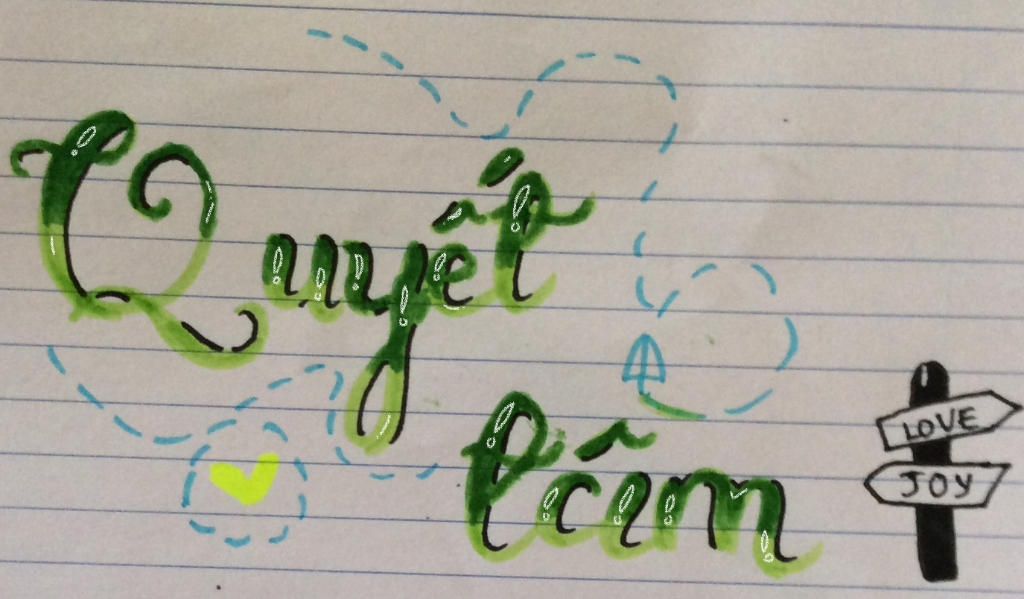 Quyết
tâm
LOVE
JOY